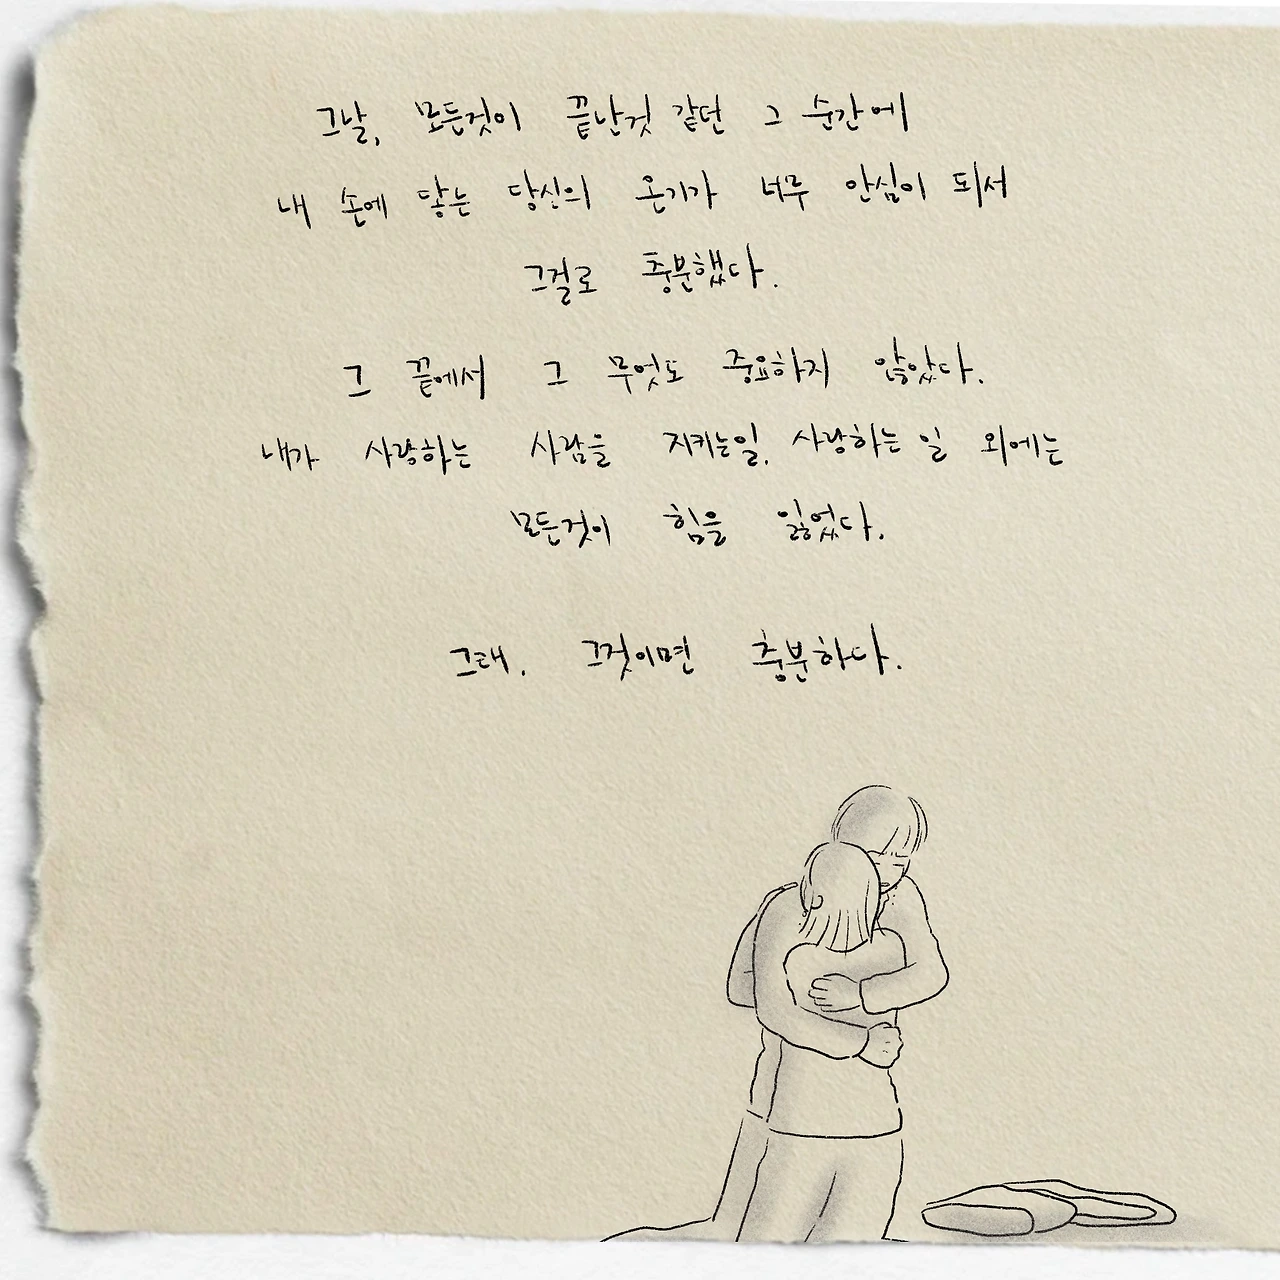 그날, 모든것이 끝난것 같던 그 순간에
내 손에 닿는 당신의 온기가 너무 안심이 되서
그걸로 충분했다.
그 끝에서 그 무엇도 중요하지 않았다.
내가 사랑하는 사람을 지키는일, 사랑하는 일 외에는
모든것이 힘을 잃었다.
그래. 그것이면 충분하다.